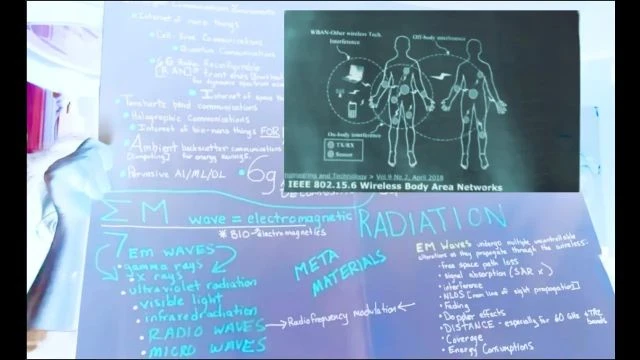 Internet of nano things
Cell Free Communications
Quantum Communications
6G Radio Reconfigurable
[RAN] front ends
for dynamic spectrum
Internet of space
Terahertz band communications
Holographic Communications
Internet of bio-nano things FOR
Ambient backscatter communications
[Computing] for energy savings.
Pervasive AI/ML/DL
6g
WBAN-Other wireless Tech.
Interference
Off-body interference
On-body interference
TX/RX
Sensor
Engineering and Technology > Vol 9 No 2, April 2018
IEEE 802.15.6 Wireless Body Area Networks
EM wave = electromagnetic RADIATION
* BIO-electromagnetics
EM WAVES
gamma rays
x rays
ultraviolet radiation
visible light
infrared radiation
RADIO WAVES
MICRO WAVES
META
MATERIALS
Radiofrequency modulation
EM Waves undergo multiple uncontrollable
alterations as they propagate through the wireless.
free space path loss
signal absorption (SAR x)
interference
NLOS [non line of sight propagation]
Fading
Doppler effects
DISTANCE - especially for 60 GHz + THz
bands
Coverage
Energy Consumptions